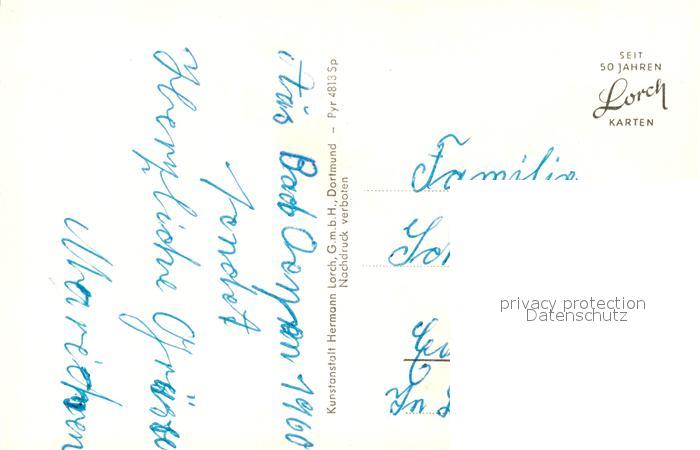 Aus Bad Oeynh 1960
sendet
Herzliche Grüsse
Mariechen
Kunstanstalt Hermann Lorch, G.m.b.H., Dortmund – Pyr 4813 Sp
Nachdruck verboten
SEIT
50 JAHREN
Lorch
KARTEN
Familie
Sch
In
privacy protection
Datenschutz